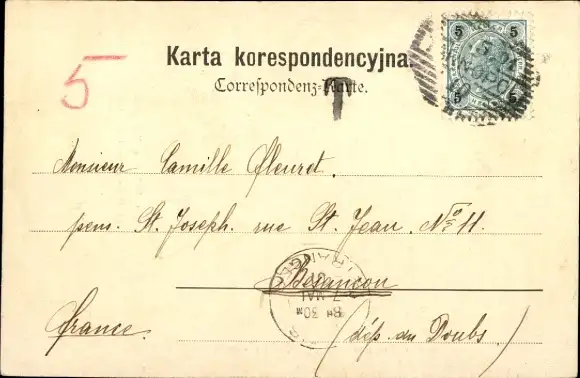 Karta korespondencyjna.
Correspondenz-Karte.
5
T
5 5
5 5
Monsieur Camille Fleuret.
pens. St. Joseph. rue St. Jean. No 11.
Besançon
France. (dép. du Doubs)
7 MAI
30